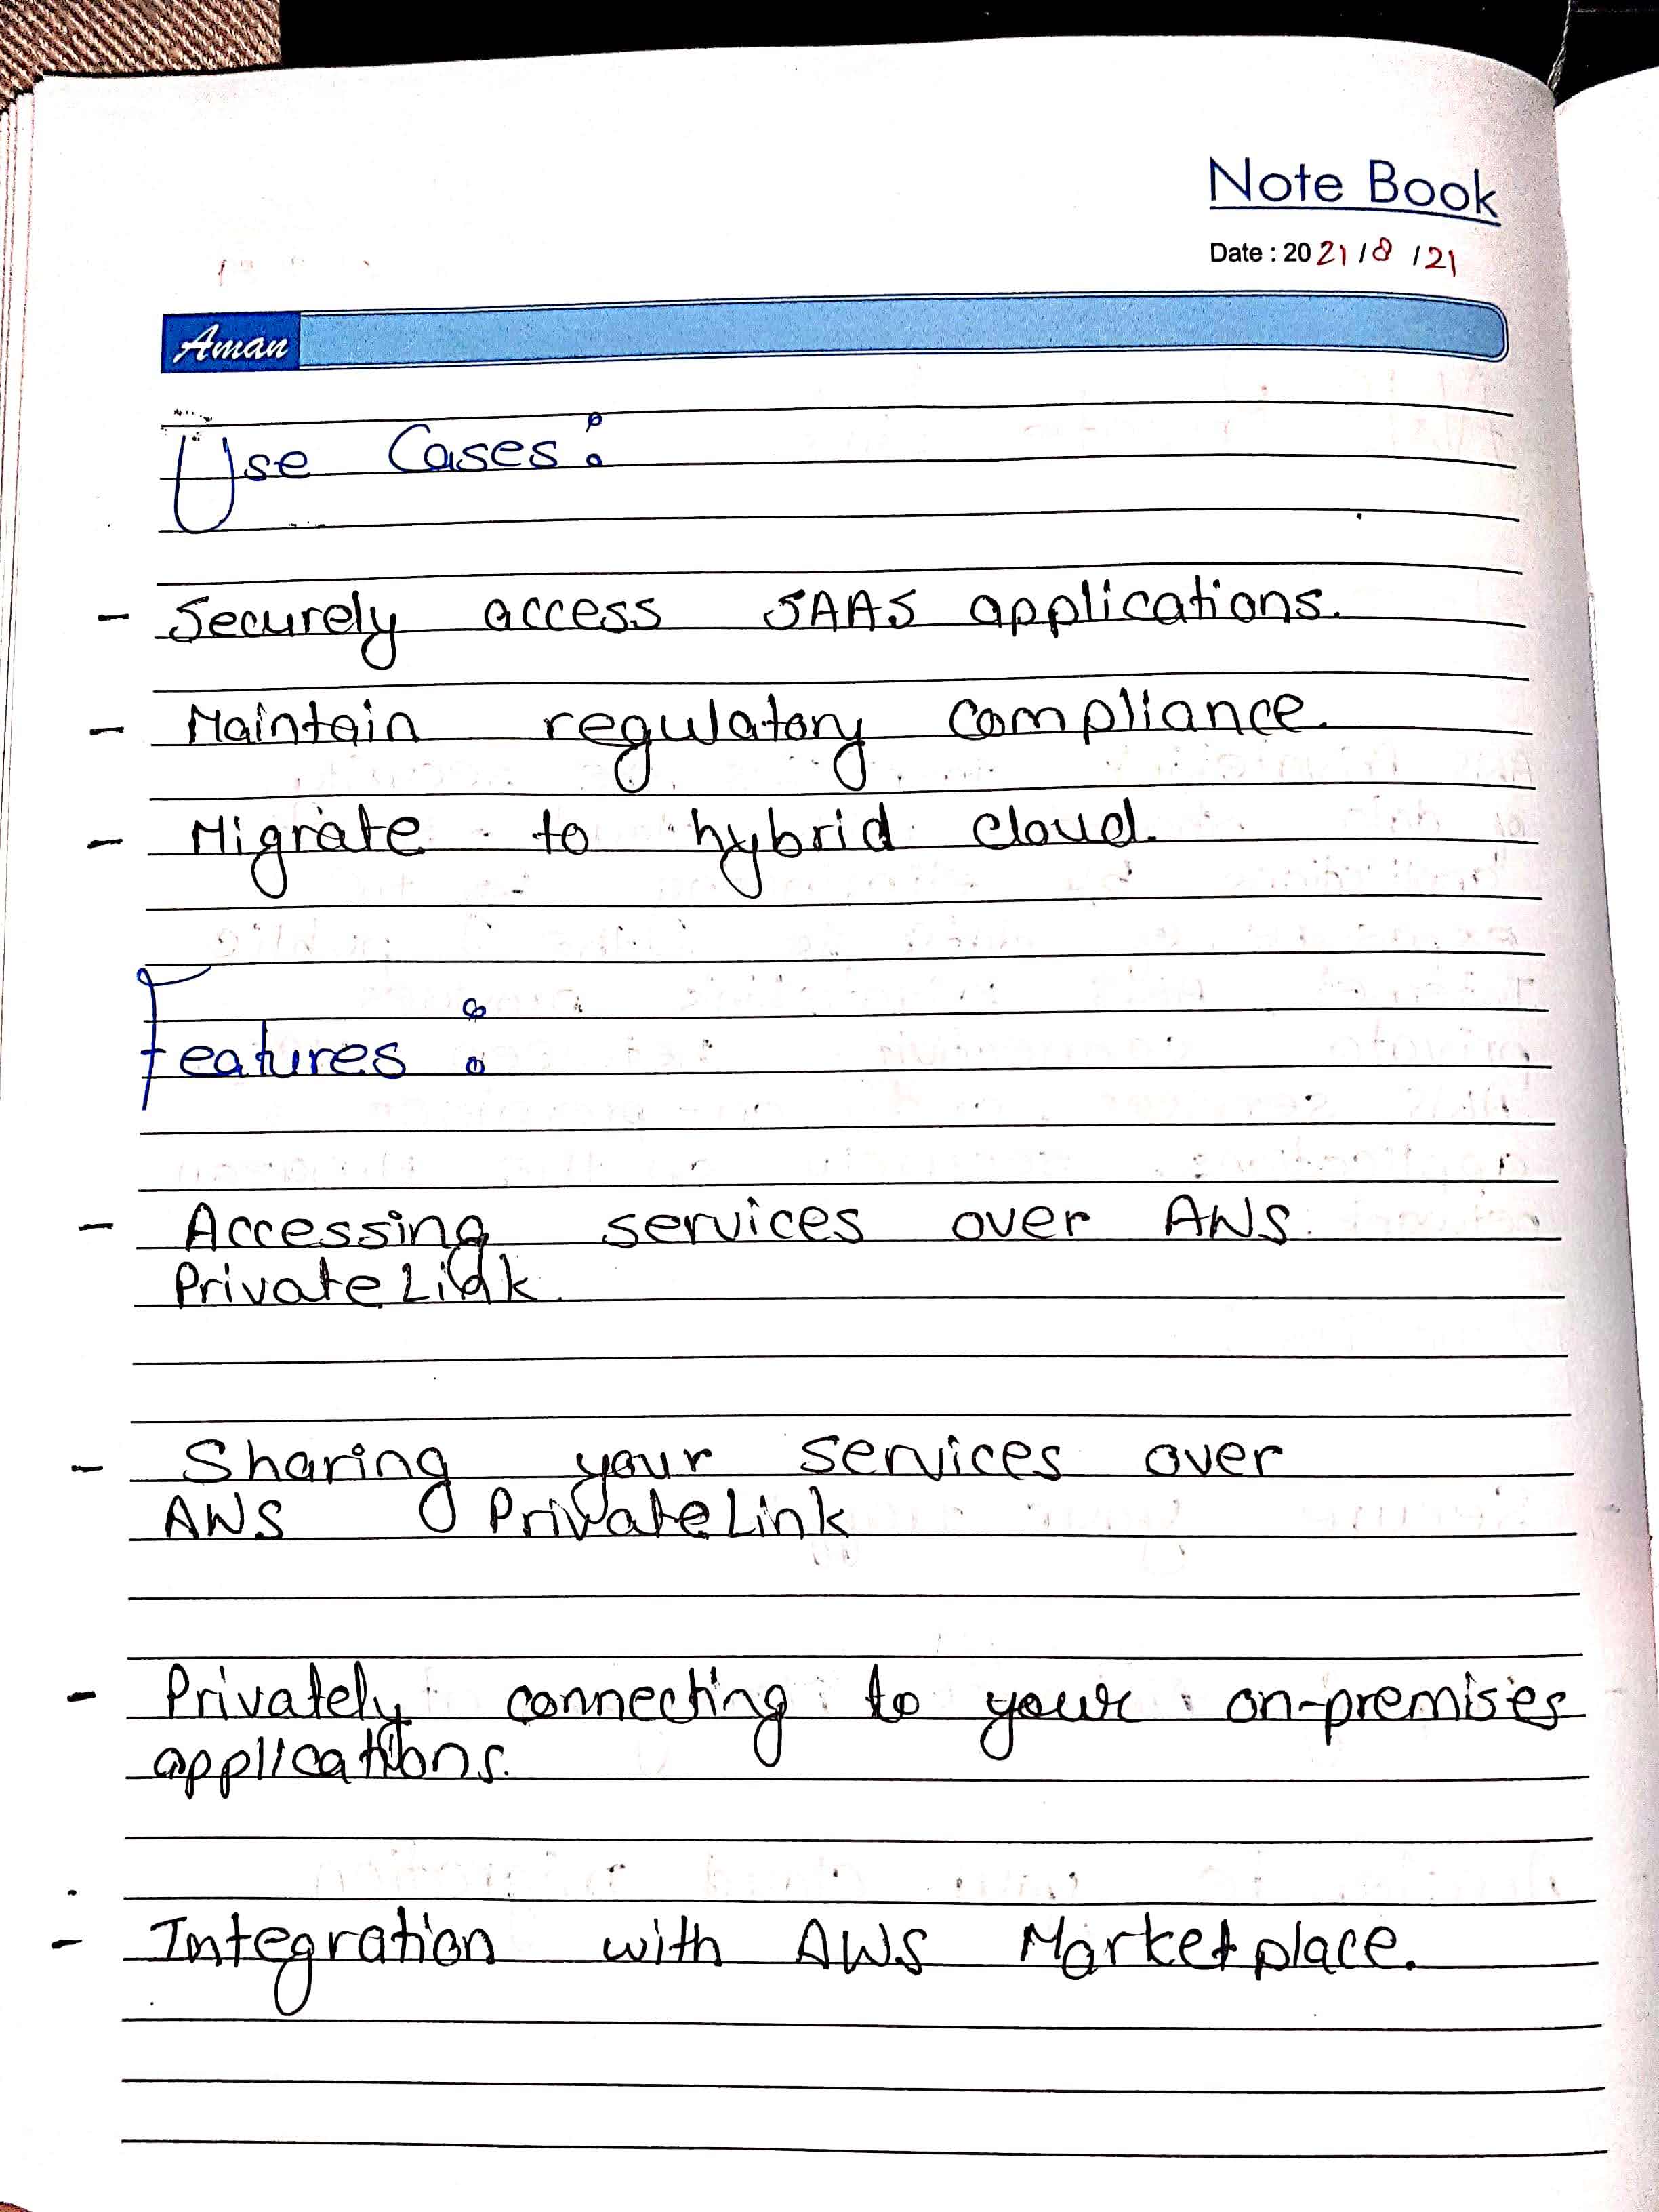 Note Book
Date : 2021/8/21
Aman
Use Cases:
- Securely access SAAS applications.
- Maintain regulatory compliance.
- Migrate to hybrid cloud.
Features:
- Accessing services over AWS
PrivateLink.
- Sharing your services over
AWS PrivateLink
- Privately connecting to your on-premises
applications.
- Integration with AWS Marketplace.